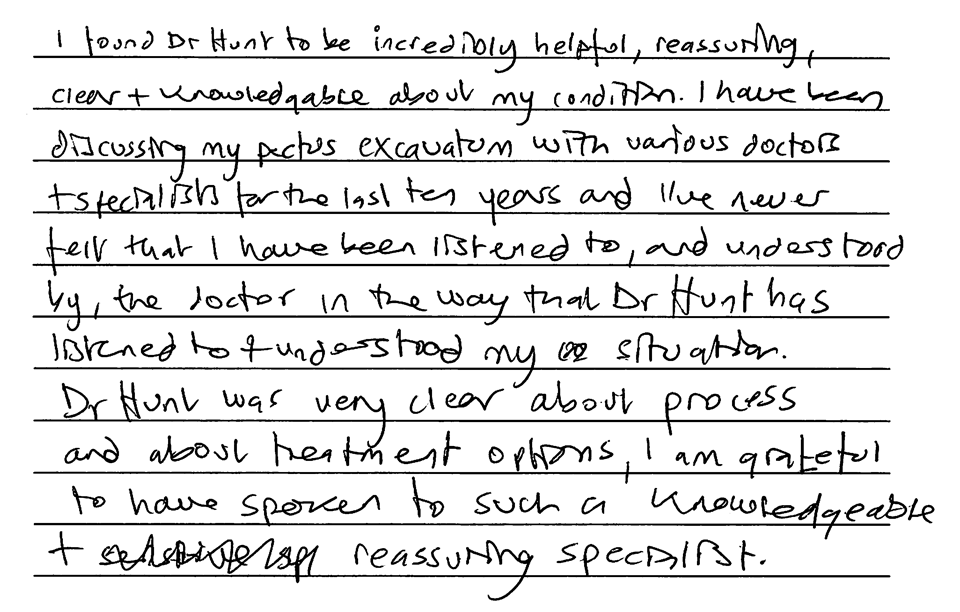 I found Dr Hunt to be incredibly helpful, reassuring,
clear + knowledgable about my condition. I have been
discussing my pectus excavatum with various doctors
+ specialists for the last ten years and I've never
felt that I have been listened to, and understood
by, the doctor in the way that Dr Hunt has
listened to + understood my situation.
Dr Hunt was very clear about process
and about treatment options, I am grateful
to have spoken to such a knowledgeable
+ reassuring specialist.